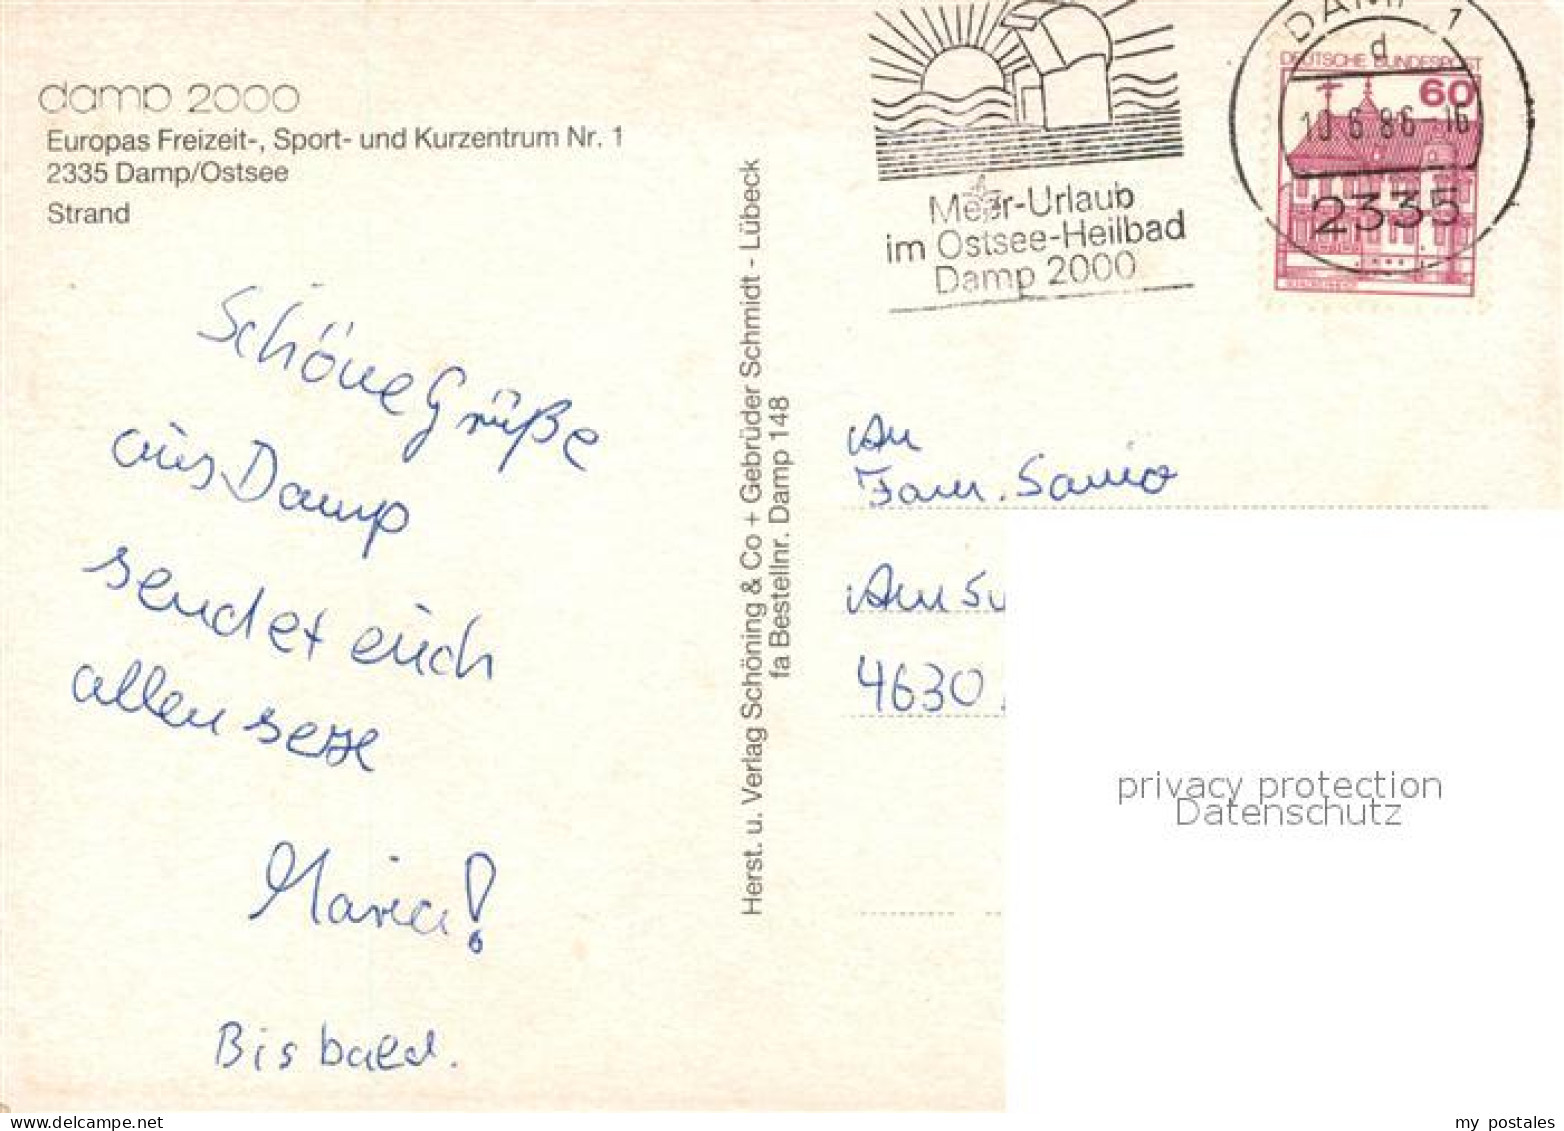 damp 2000
Europas Freizeit-, Sport- und Kurzentrum Nr. 1
2335 Damp/Ostsee
Strand
Schöne Grüße
aus Damp
sendet euch
allen
Maria!
Bis bald.
Herst. u. Verlag Schöning & Co + Gebrüder Schmidt - Lübeck
fa Bestellnr. Damp 148
Meer-Urlaub
im Ostsee-Heilbad
Damp 2000
DAMP 1
d
10.6.86-16
2335
DEUTSCHE BUNDESPOST
60
An
Fam. Sanio
Am
4630
privacy protection
Datenschutz
my postales
www.delcampe.net